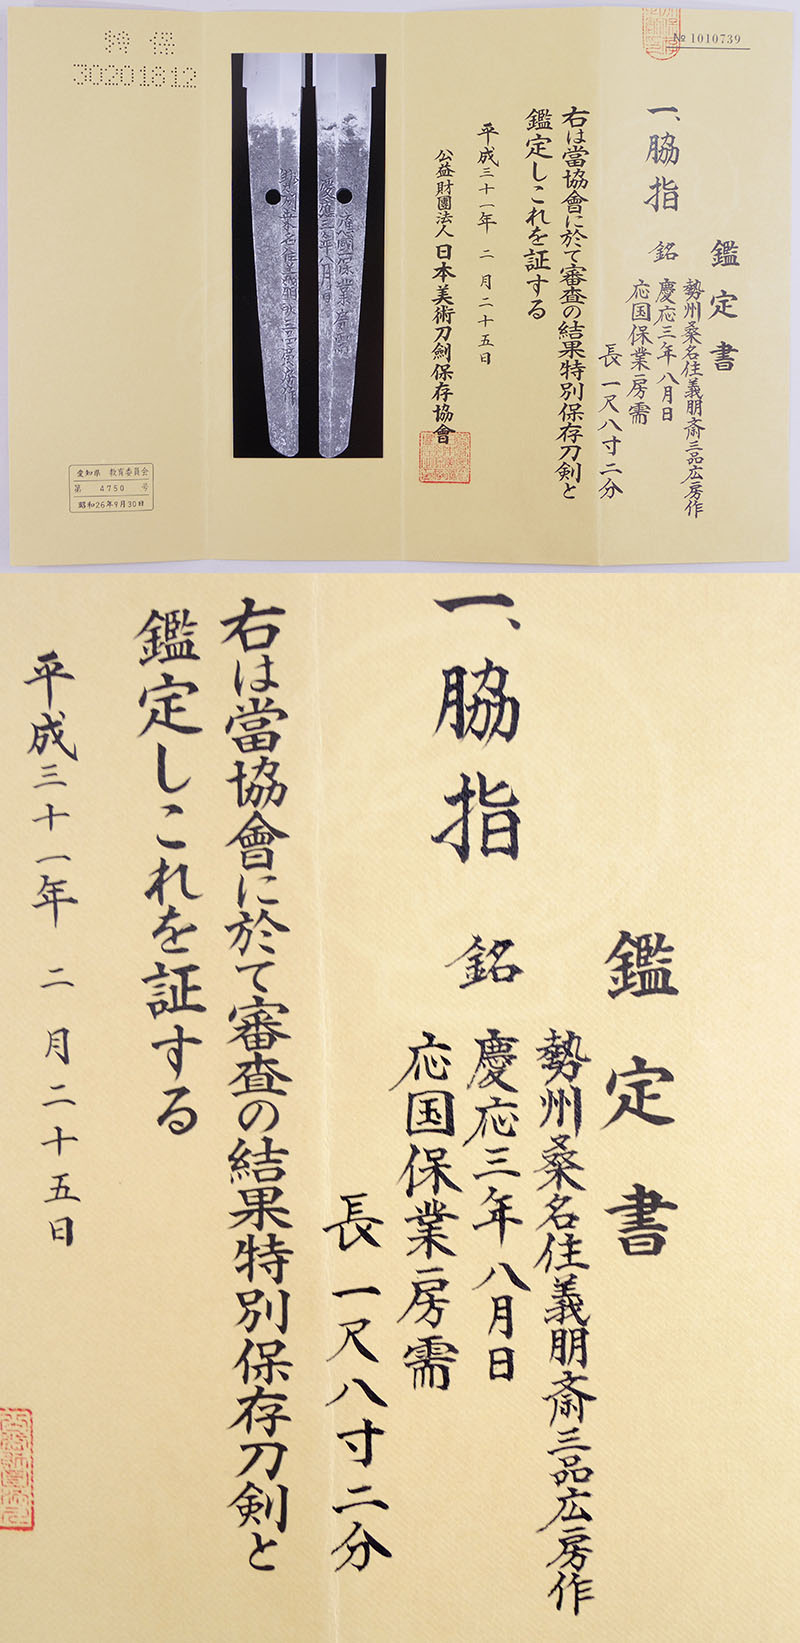 № 1010739
鑑定書
一、脇指
銘
勢州桑名住義朋斎三品広房作
慶応三年八月日
応国保業房需
長一尺八寸二分
右は當協會に於て審査の結果特別保存刀剣と
鑑定しこれを証する
平成三十一年二月二十五日
公益財團法人日本美術刀剣保存協會
慶應三年八月日
特保
30201812
愛知県 教育委員会
第 4750 号
昭和26年9月30日
鑑定書
一、脇指
銘
勢州桑名住義朋斎三品広房作
慶応三年八月日
応国保業房需
長一尺八寸二分
右は當協會に於て審査の結果特別保存刀剣と
鑑定しこれを証する
平成三十一年二月二十五日